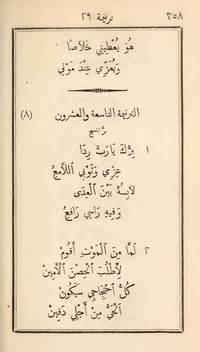 ٢٥٨ ترنيمة ٢٩
هُوَ يُعْطِينِي خَلَاصًا
وَيُعَزِّي عِنْدَ مَوْتِي
الترنيمة التاسعة والعشرون (٨)
١ بِرُّكَ يَا رَبُّ رِدَا
عِزِّي وَثَوْبِي اللَّامِعُ
لَابِسُهُ بَيْنَ الْعِدَى
وَفِيهِ رَاسِي رَافِعُ
٢ لَمَّا مِنَ الْمَوْتِ أَقُومْ
لِأَطْلُبَ الْحِصْنَ الْأَمِينْ
كُلُّ احْتِجَاجِي سَيَكُونْ
الْحَيُّ مِنْ أَجْلِي دَفِينْ